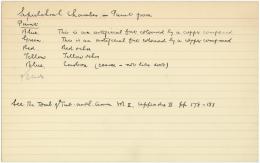 Sepulchral Chamber – Paint from
Paint
Blue. This is an artificial frit coloured by a copper compound
Green. This is an artificial frit coloured by a copper compound
Red Red ochre
Yellow Yellow ochre
Black.
See the Tomb of Tut.ankh.Amen Vol II, Appendix II pp 178-183